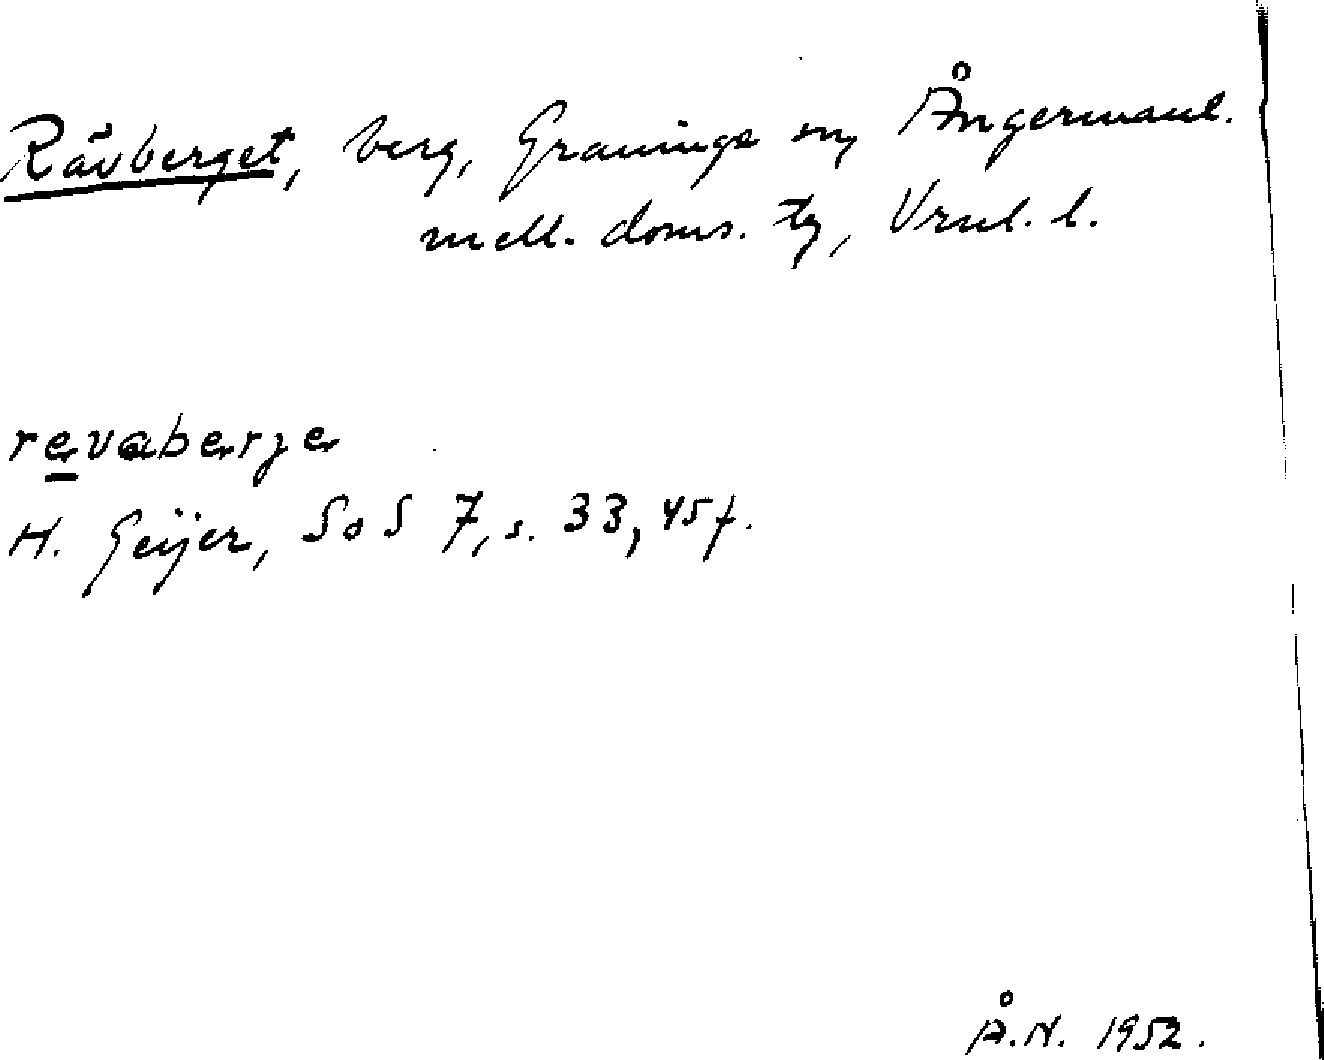 Rävberget, berg, Graninge sn, Ångermanl.
mell. doms. tg, Vrnl. l.
revaberje
H. Geijer, SoS 7, s. 33, 45 f.
Å.N. 1952.